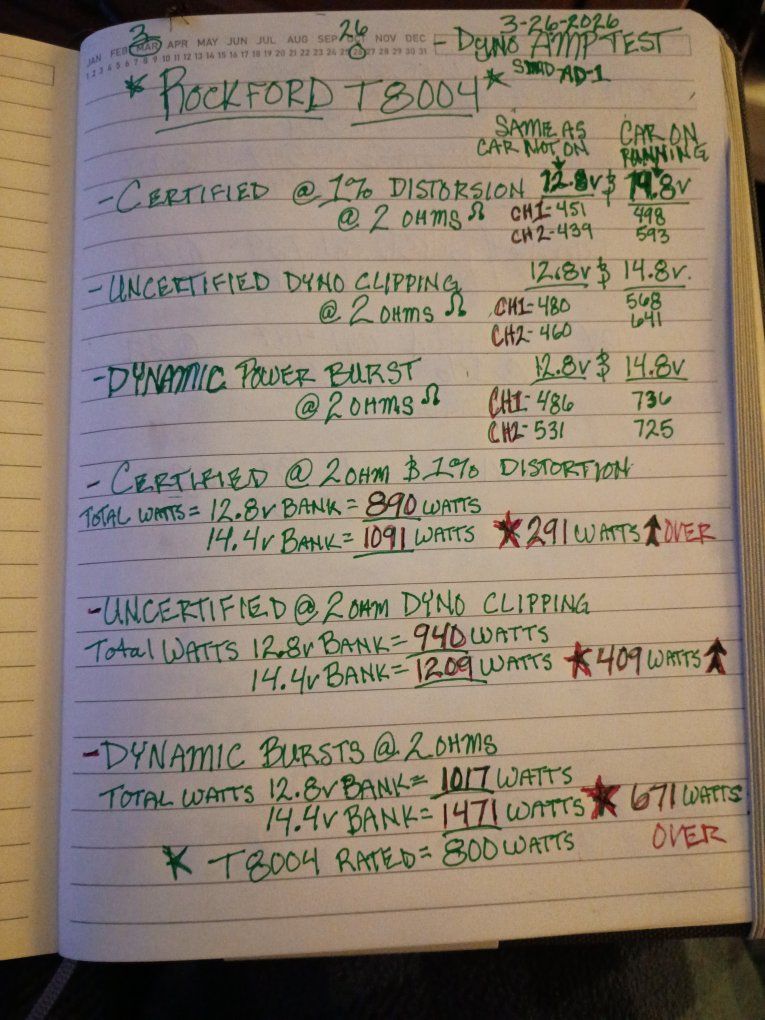 3 26 3-26-2026
JAN FEB MAR APR MAY JUN JUL AUG SEP OCT NOV DEC - DYNO AMP TEST
1 2 3 4 5 6 7 8 9 10 11 12 13 14 15 16 17 18 19 20 21 22 23 24 25 26 27 28 29 30 31
SMD-AD-1
* ROCKFORD T8004 *
SAME AS CAR ON
CAR NOT ON RUNNING
- CERTIFIED @ 1% DISTORSION 12.8v & 14.8v
@ 2 OHMS Ω CH1-451 498
CH2-439 593
- UNCERTIFIED DYNO CLIPPING 12.8v & 14.8v.
@ 2 OHMS Ω CH1-480 568
CH2-460 641
- DYNAMIC POWER BURST 12.8v & 14.8v
@ 2 OHMS Ω CH1-486 736
CH2-531 725
- CERTIFIED @ 2 OHM & 1% DISTORTION
TOTAL WATTS = 12.8v BANK = 890 WATTS
14.4v BANK = 1091 WATTS * 291 WATTS ↑ OVER
- UNCERTIFIED @ 2 OHM DYNO CLIPPING
TOTAL WATTS 12.8v BANK = 940 WATTS
14.4v BANK = 1209 WATTS * 409 WATTS ↑
- DYNAMIC BURSTS @ 2 OHMS
TOTAL WATTS 12.8v BANK = 1017 WATTS
14.4v BANK = 1471 WATTS * 671 WATTS
OVER
* T8004 RATED = 800 WATTS